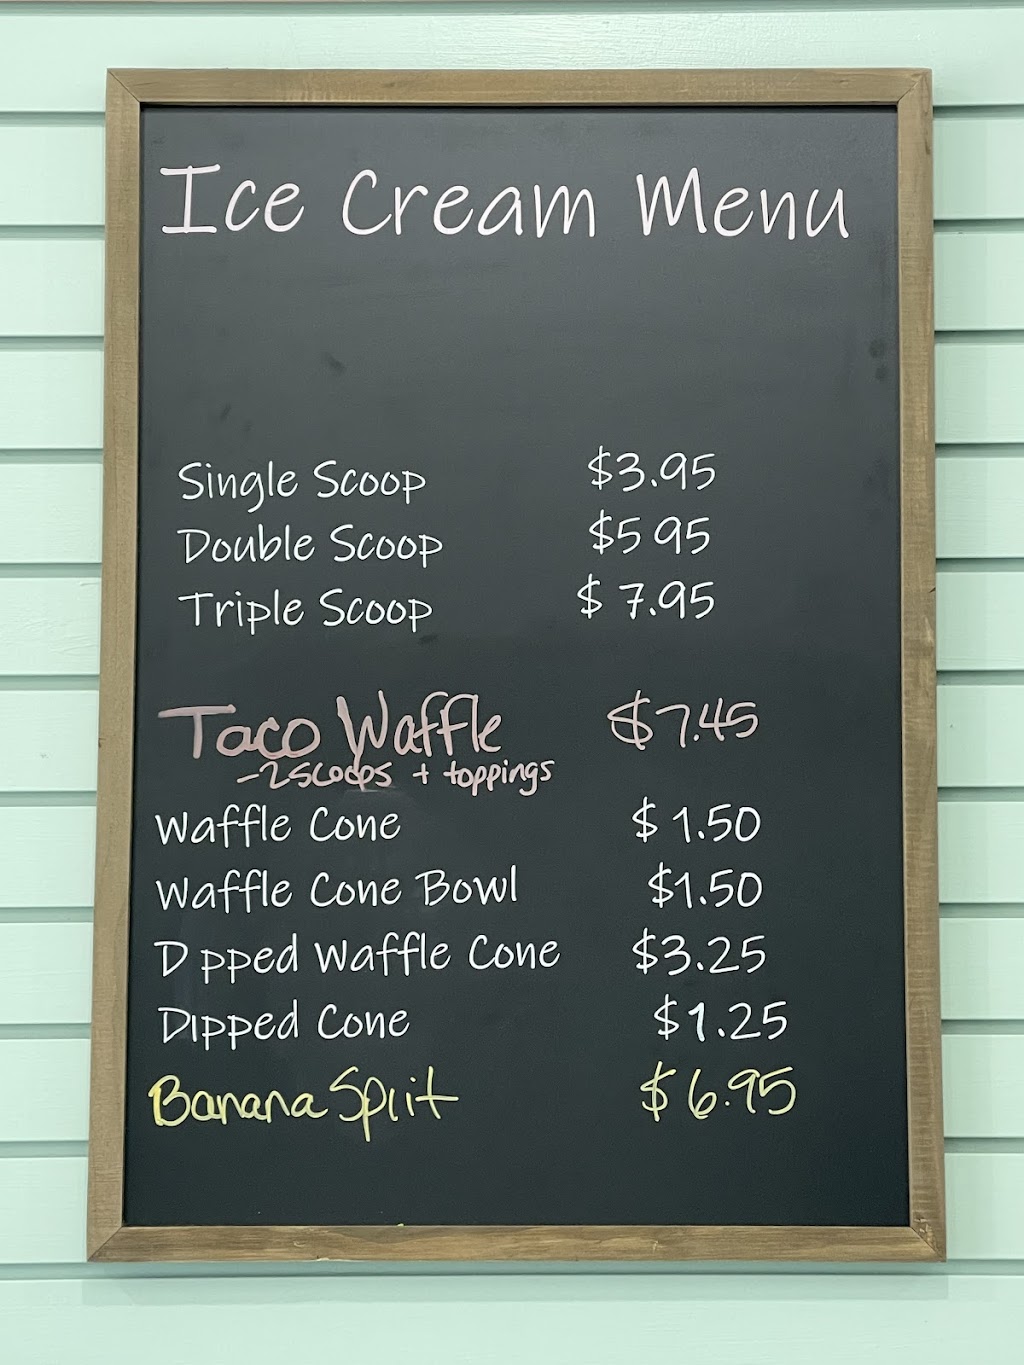 Ice Cream Menu
Single Scoop $3.95
Double Scoop $5 95
Triple Scoop $7.95
Taco Waffle $7.45
-2 scoops + toppings
Waffle Cone $1.50
Waffle Cone Bowl $1.50
D pped Waffle Cone $3.25
Dipped Cone $1.25
Banana Split $6.95